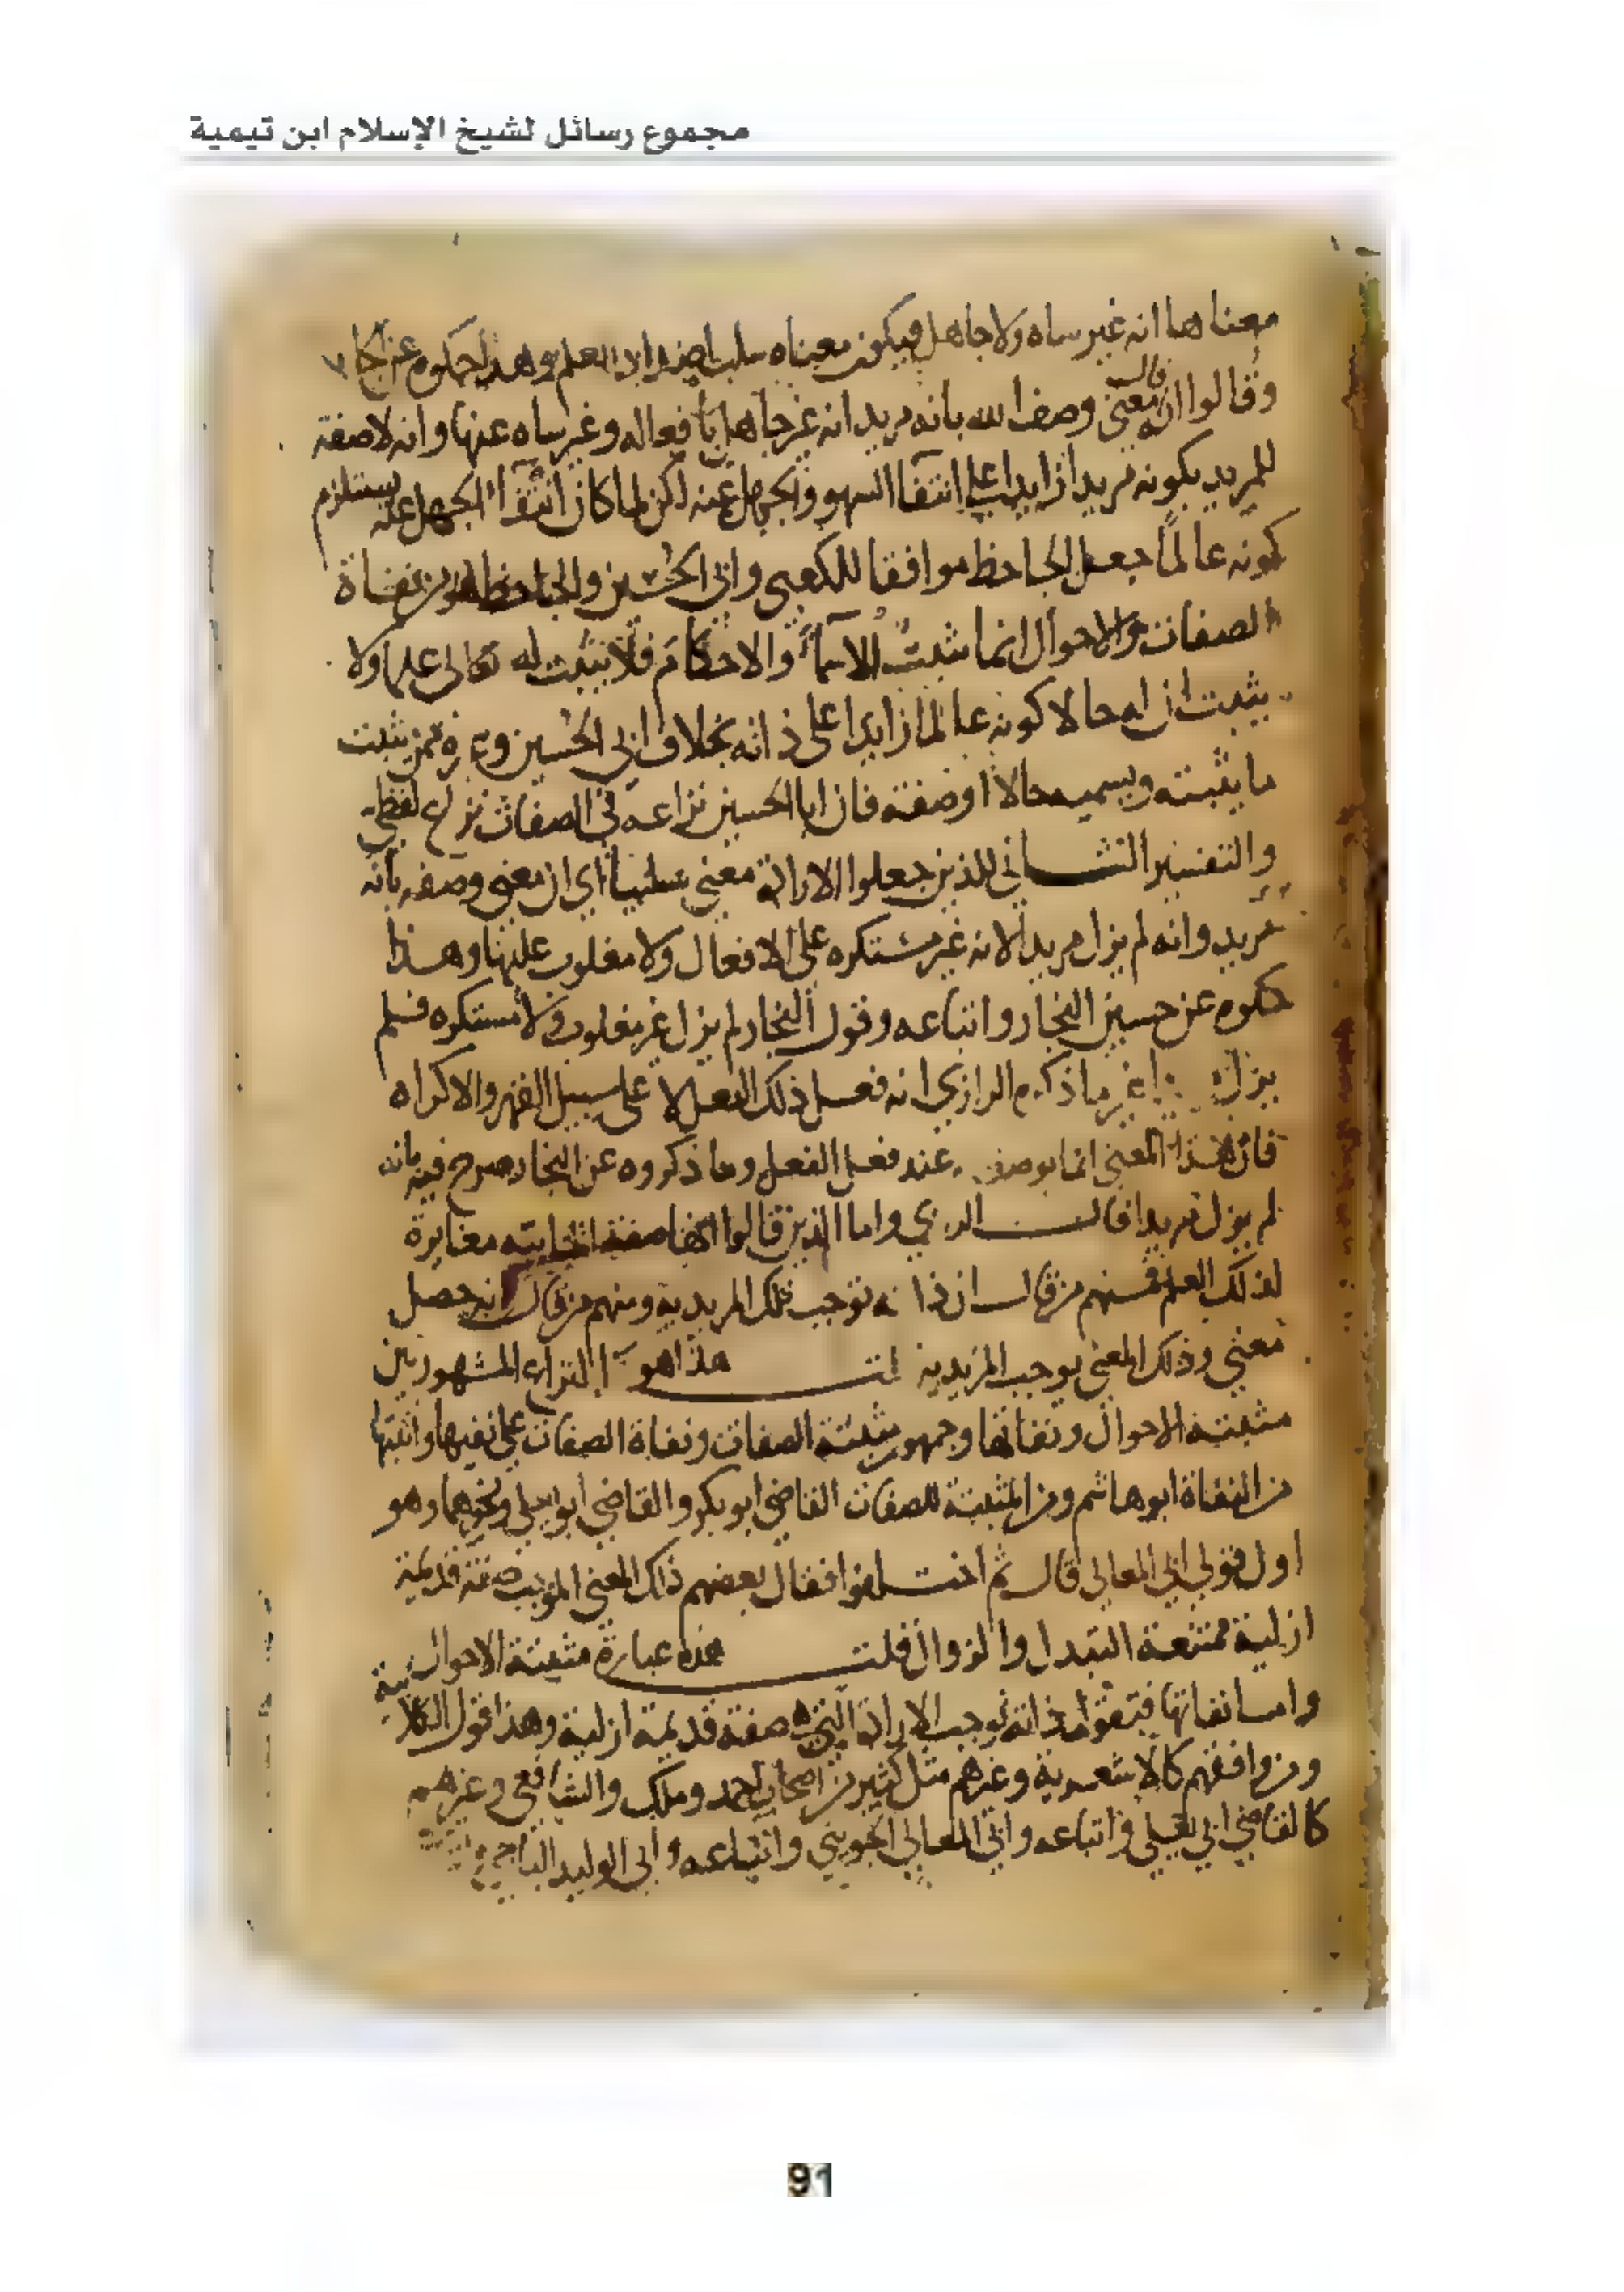 مجموع رسائل لشيخ الإسلام ابن تيمية
معناها انه غير ساه ولا جاهل فيكون معناه سلب اضداد العلم وهذا حكوه عن
وقالوا ان معنى وصف الله بانه مريد انه غير جاهل بافعاله وغير ساه عنها وانه لا صفة
قال
للمريد بكونه مريدا زايدا على انتفا السهو والجهل عنه لكن لما كان انتفا الجهل عنه يستلزم
كونه عالما جعل الجاحظ موافقا للكعبي وابي الحسين والجاحظ هو من نفاة
الصفات والاحوال انما يثبت الاسماء والاحكام فلا يثبت له تعالى علما ولا
يثبت ان له حالا كونه عالما زايدا على ذاته بخلاف ابي الحسين وغيره ممن يثبت
ما يثبته ويسميه حالا او صفة فان ابا الحسين نزاعه في الصفات نزاع لفظي
والتفسير الثاني للذين جعلوا الارادة معنى سلبيا اي ان معنى وصفه بانه
مريد وانه لم يزل مريدا لانه غير مستكره على الافعال ولا مغلوب عليها وهذا
حكوه عن حسين النجار واتباعه وقول النجار لم يزل غير مغلوب ولا مستكره فلم
يزل غير ما ذكره الرازي انه فعل ذلك الفعل لا على سبيل القهر والاكراه
فان هذا المعنى انما يوصف عند فعل الفعل وما ذكروه عن النجار صرح فيه بانه
لم يزل مريدا قال الرازي واما الذين قالوا انها صفة اثباتيه مغايرة
لذلك العلم فمنهم من قال ان ذاته توجب تلك المريدية ومنهم من قال انه حصل
معنى وذلك المعنى يوجب المريدية قلت هذا هو النزاع المشهور بين
مثبتة الاحوال ونفاتها وجمهور مثبتة الصفات ونفاة الصفات على نفيها واثبتها
من النفاة ابو هاشم ومن المثبتة للصفات القاضي ابو بكر والقاضي ابو يعلى ونحوهما وهو
اول قولي ابي المعالي قال ثم اختلفوا فقال بعضهم ذلك المعنى الموجب صفة قديمة
ازلية ممتنعة التبدل والزوال قلت هذه عبارة مثبتة الاحوال
واما نفاتها فيقول ذاته توجب الارادة التي هي صفة قديمة ازلية وهذا قول الكلابية
ومن وافقهم كالاشعرية وغيرهم مثل كثير من اصحاب احمد وملك والشافعي وغيرهم
كالقاضي ابي يعلى واتباعه وابي المعالي الجويني واتباعه وابي الوليد الباجي
91